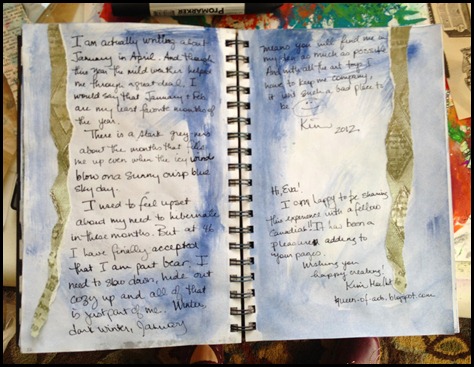 PROMARKER
I am actually writing about
January in April. And though
this year the mild weather helped
me through a great deal, I
would say that January + Feb
are my least favorite months of
the year.
There is a stark grey-ness
about the months that
me up even when the icy wind
blow on a sunny crisp blue
sky day.
I used to feel upset
about my need to hibernate
in these months. But at 46
I have finally accepted
that I am part bear. I
need to slow down, hide out
cozy up and all of that
is just part of me. Winter,
dark winter, January
means you will find me in
my as much as possible
And with all the art toys I
have to keep me company,
it isn't such a bad place to
be.
Kim
2012.
Hi, Eva!
I am happy to be sharing
this experience with a fellow
Canadian!! It has been a
pleasure adding to
your pages.
Wishing you
happy creating!
Kim
queen-of-arts.blogspot.com